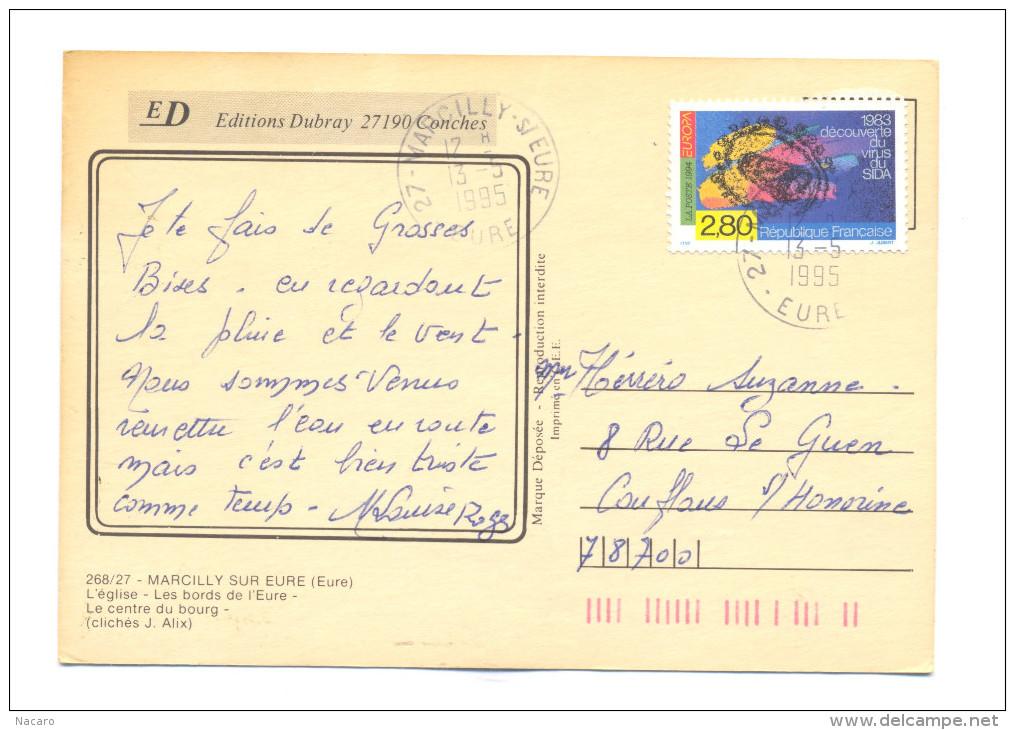 ED Editions Dubray 27190 Conches
27-MARCILLY-S/EURE
12 H
13-5
1995
EURE
EUROPA
LA POSTE 1994
1983
découverte
du
virus
du
SIDA
2,80 République Française
ITVF J. JUBERT
27-
12 H
13-5
1995
EURE
Je te fais de Grosses
Bises . en regardant
la pluie et le vent .
Nous sommes Venus
remettre l'eau en route
mais c'est bien triste
comme Temps - M Louise
Marque Déposée - Reproduction interdite
Imprimé en C.E.E.
Suzanne .
8 Rue Le Guen
Conflans s/ Honorine
78700
268/27 - MARCILLY SUR EURE (Eure)
L'église - Les bords de l'Eure -
Le centre du bourg -
(clichés J. Alix)
Nacaro
delcampe.net